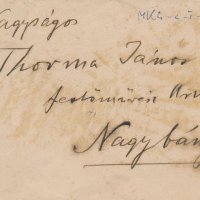 Nagyságos
Thorma János
festőművész Úrnak
Nagybán